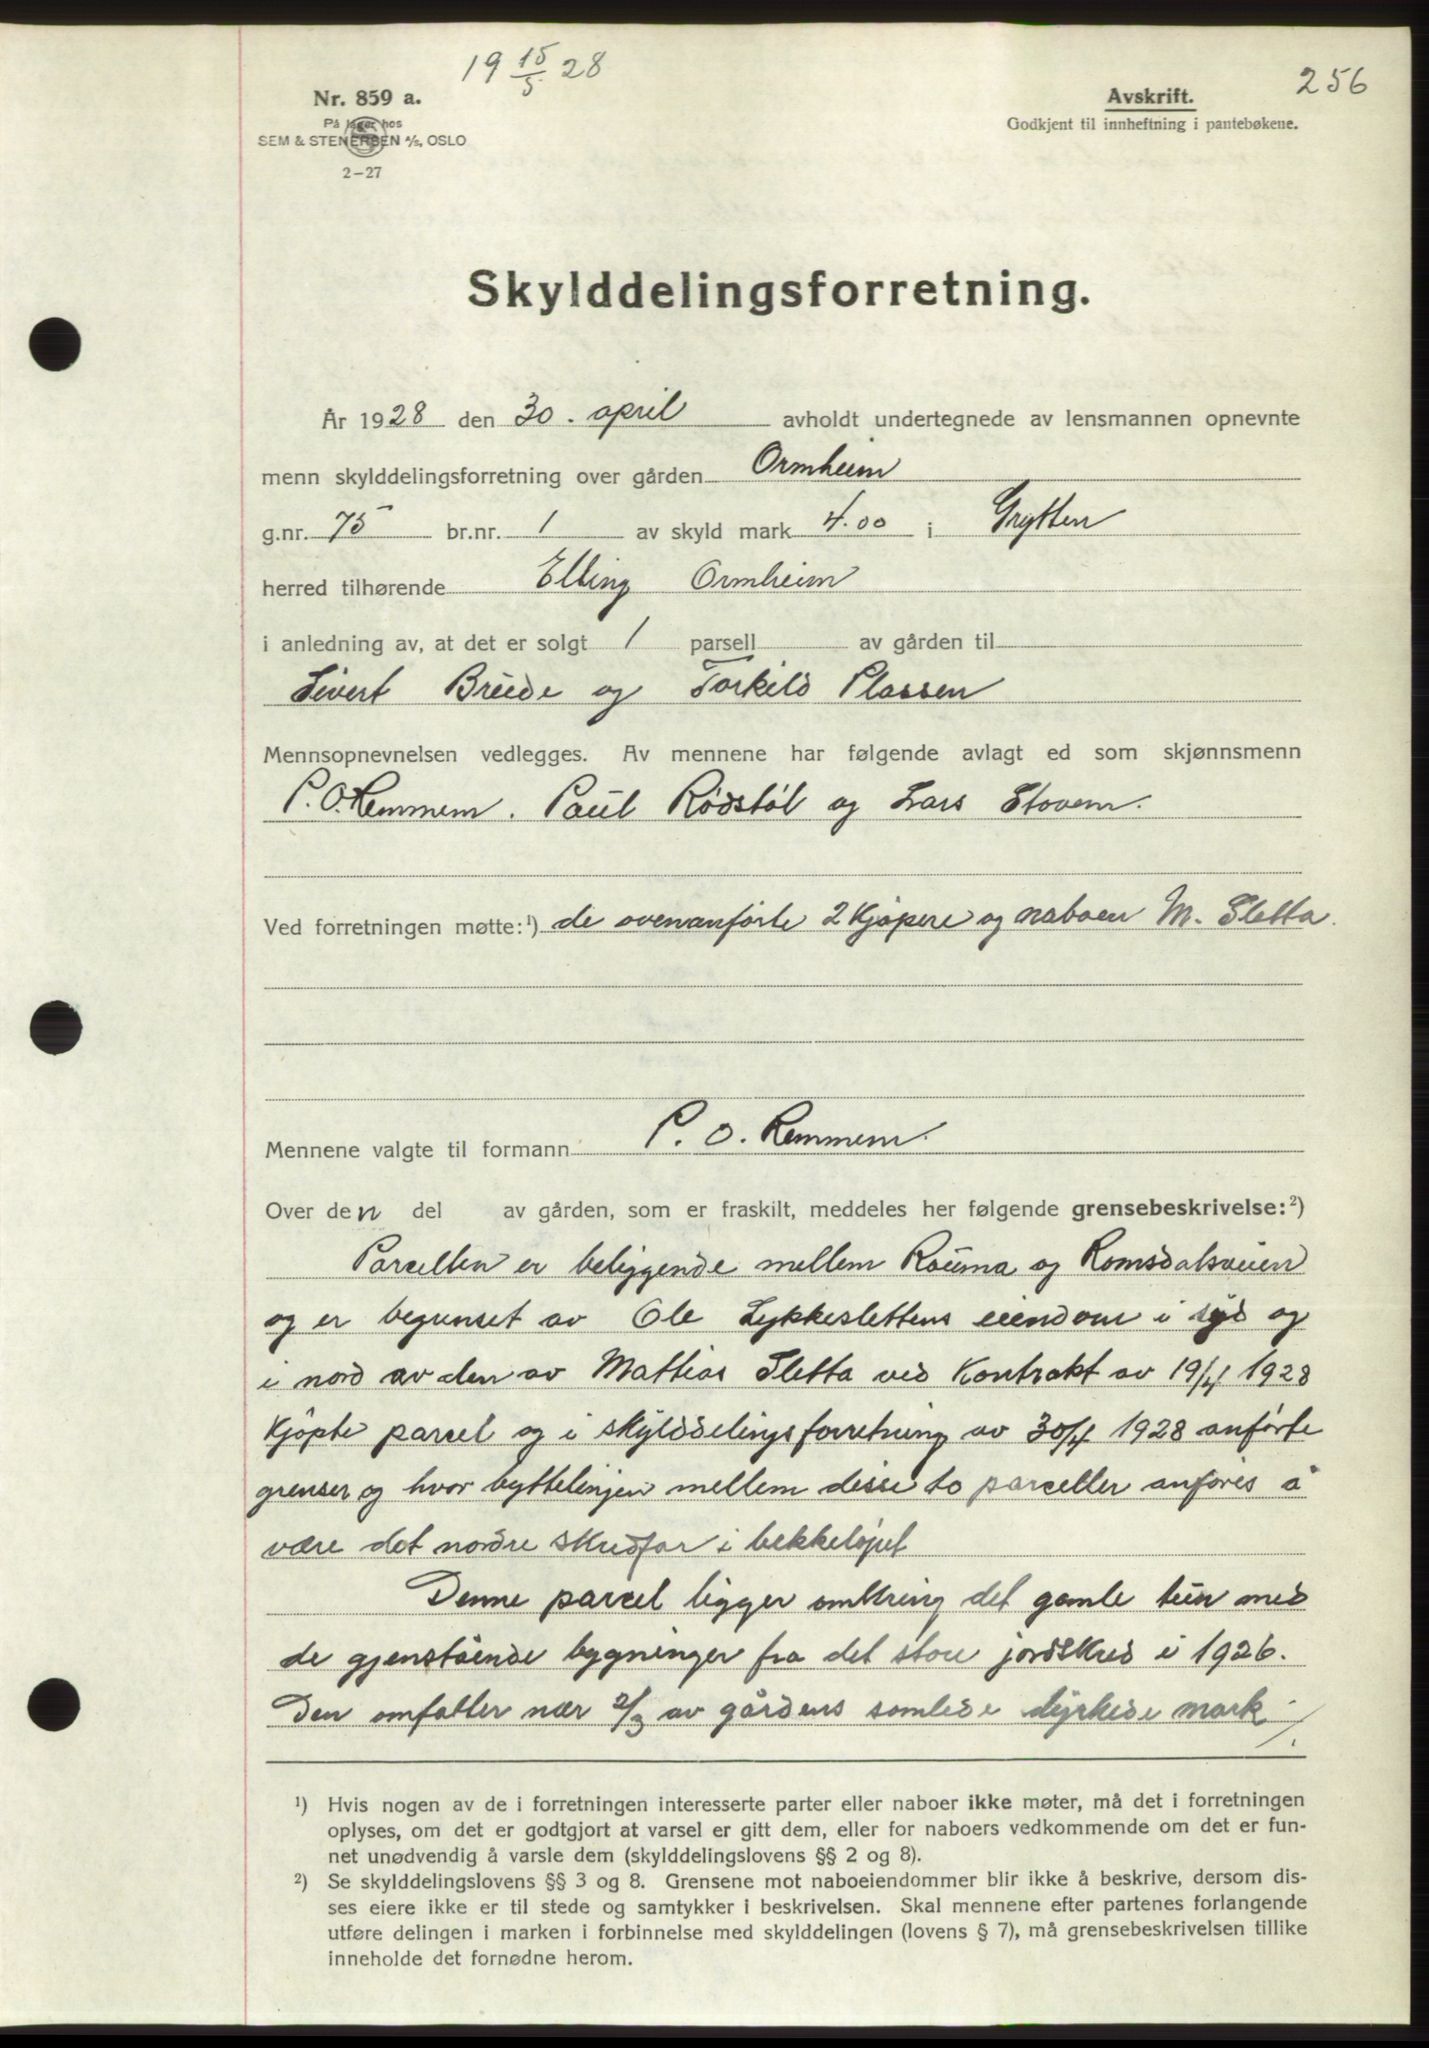 19 15/5 28
256
Nr. 859 a.
På lager hos
SEM & STENERSEN A/S, OSLO
2-27
Avskrift.
Godkjent til innheftning i pantebøkene.
Skylddelingsforretning.
År 1928 den 30. april avholdt undertegnede av lensmannen opnevnte
menn skylddelingsforretning over gården Ormheim
g.nr. 75 br.nr. 1 av skyld mark 4.00 i Grytten
herred tilhørende Elling Ormheim
i anledning av, at det er solgt 1 parsell av gården til
Sivert Breide og Torkild Plassen
Mennsopnevnelsen vedlegges. Av mennene har følgende avlagt ed som skjønnsmenn
P. O. Remmem. Paul Rødstøl og Lars Stovem.
Ved forretningen møtte:¹) de ovenanførte 2 Kjøpere og naboen M. Sletta.
Mennene valgte til formann P. O. Remmem.
Over den del av gården, som er fraskilt, meddeles her følgende grensebeskrivelse:²)
Parcellen er beliggende mellem Rauma og Romsdalsveien
og er begrenset av Ole Lykkeslettens eiendom i syd og
i nord av den av Mathias Sletta ved Kontrakt av 19/4 1928
Kjøpte parcel og i skylddelingsforretning av 30/4 1928 anførte
grenser og hvor byttelinjen mellem disse to parceller anføres å
være det nordre skredfar i bekkeløpet
Denne parcel ligger omkring det gamle tun med
de gjenstående bygninger fra det store jordskred i 1926.
Den omfatter nær 2/3 av gårdens samlede dyrkede mark
/.
¹) Hvis nogen av de i forretningen interesserte parter eller naboer ikke møter, må det i forretningen
oplyses, om det er godtgjort at varsel er gitt dem, eller for naboers vedkommende om det er fun-
net unødvendig å varsle dem (skylddelingslovens §§ 2 og 8).
²) Se skylddelingslovens §§ 3 og 8. Grensene mot naboeiendommer blir ikke å beskrive, dersom dis-
ses eiere ikke er til stede og samtykker i beskrivelsen. Skal mennene efter partenes forlangende
utføre delingen i marken i forbinnelse med skylddelingen (lovens § 7), må grensebeskrivelsen tillike
inneholde det fornødne herom.